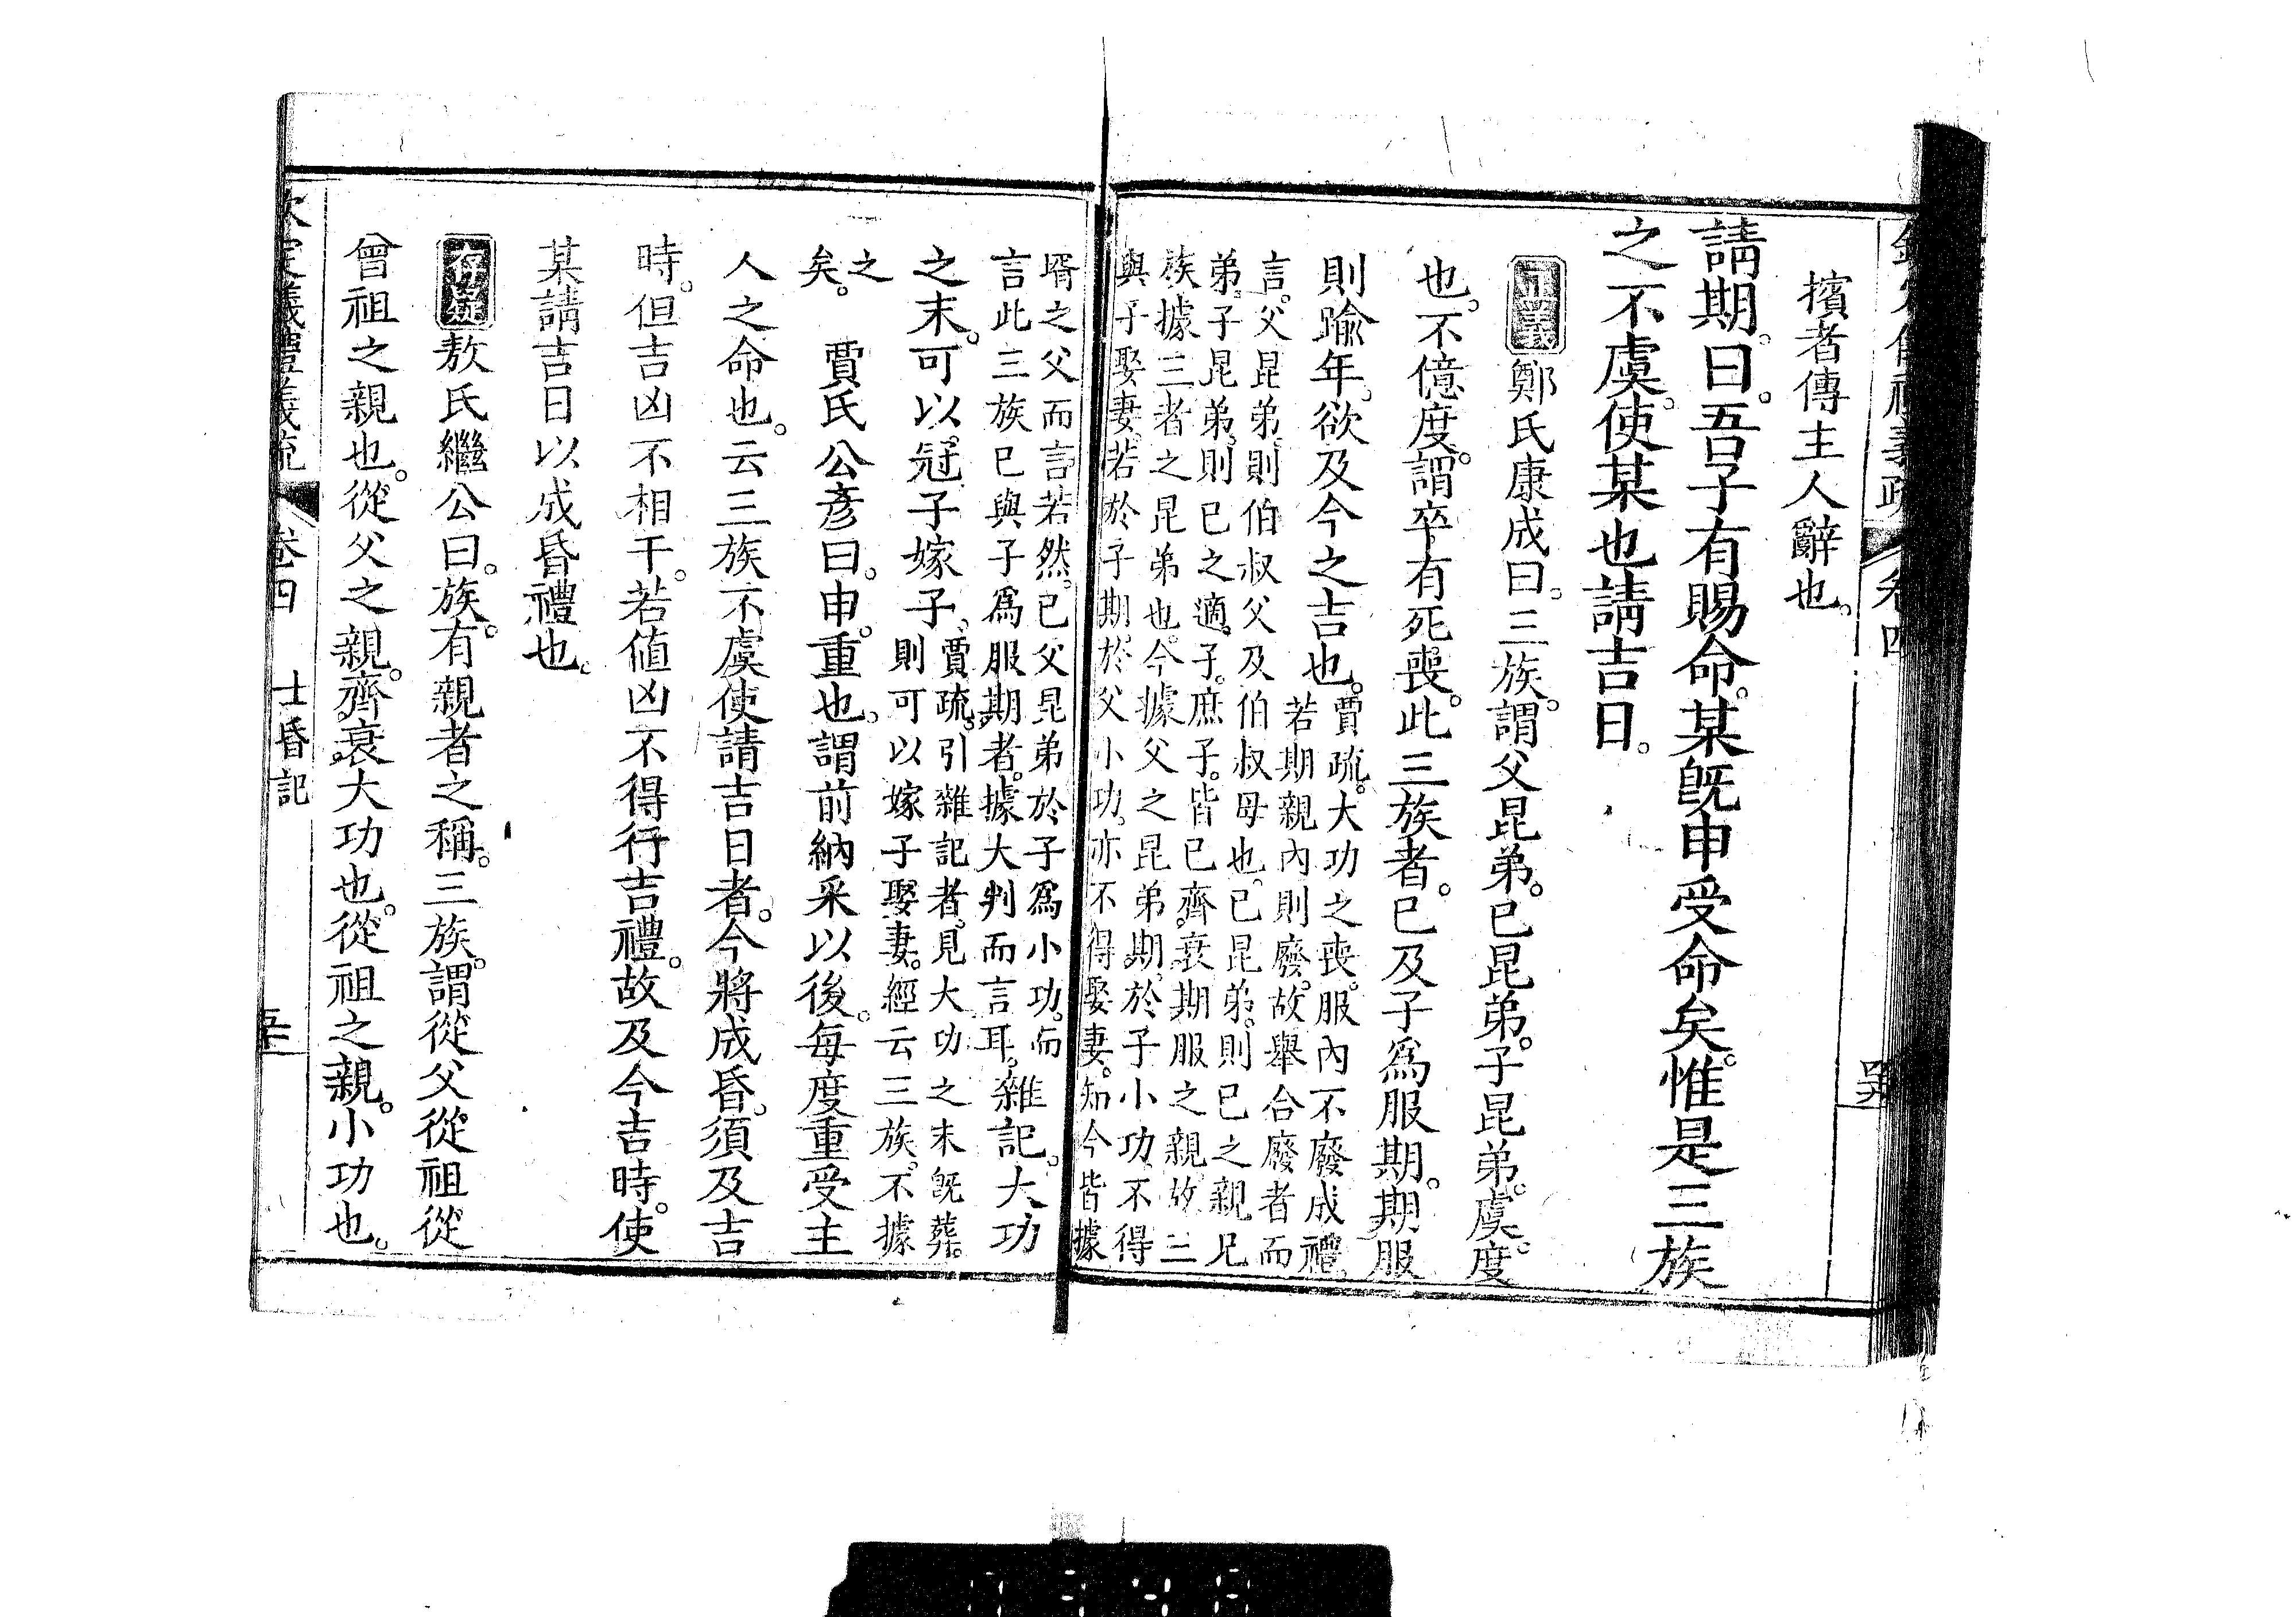 擯者傳主人辭也。
請期。曰。吾子有賜命。某旣申受命矣。惟是三族
之不虞。使某也請吉日。
正義鄭氏康成曰。三族。謂父昆弟。己昆弟。子昆弟。虞。度
也。不億度。謂卒有死喪。此三族者。己及子爲服期。期服
則踰年。欲及今之吉也。賈疏。大功之喪。服內不廢成禮。
若期親內則廢。故舉合廢者而
言。父昆弟。則伯叔父及伯叔母也。己昆弟。則己之親兄
弟。子昆弟。則己之適子。庶子。皆己齊衰期服之親。故三
族據三者之昆弟也。今據父之昆弟。期。於子小功。不得
與子娶妻。若於子期。於父小功。亦不得娶妻。知今皆據
壻之父而言。若然。己父昆弟於子爲小功。而
言此三族己與子爲服期者。據大判而言耳。雜記。大功
之末。可以冠子嫁子。賈疏。引雜記者。見大功之末旣葬。
則可以嫁子娶妻。經云三族。不據
之
矣。賈氏公彥曰。申。重也。謂前納采以後。每度重受主
人之命也。云三族不虞使請吉日者。今將成昏。須及吉
時。但吉凶不相干。若値凶不得行吉禮。故及今吉時。使
某請吉日以成昏禮也。
存疑敖氏繼公曰。族。有親者之稱。三族。謂從父從祖從
曾祖之親也。從父之親。齊衰大功也。從祖之親。小功也。
欽定義禮義疏 卷四 士昏記